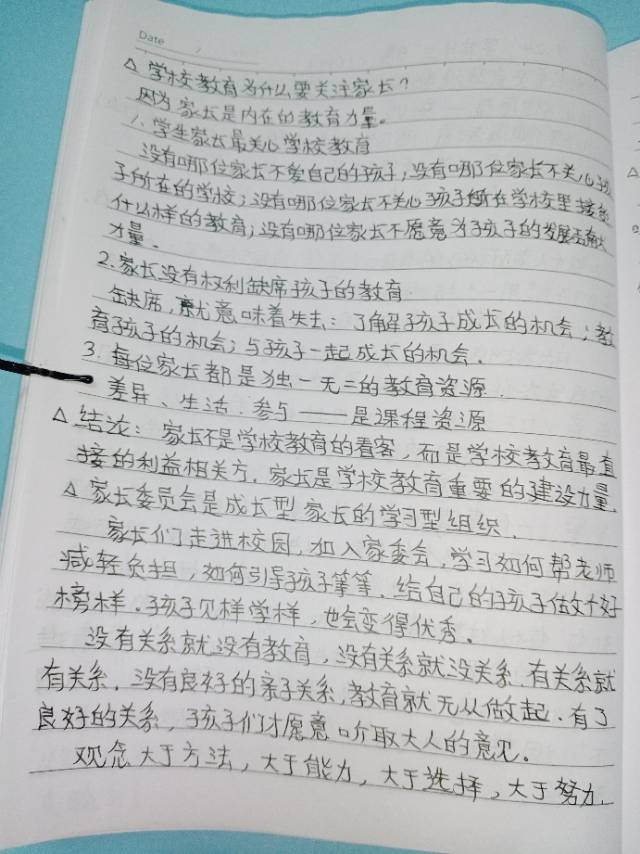 Date
△ 学校教育为什么要关注家长?
因为家长是内在的教育力量。
1. 学生家长最关心学校教育
没有哪位家长不爱自己的孩子,没有哪位家长不关心孩
子所在的学校;没有哪位家长不关心孩子所在学校里接受
什么样的教育;没有哪位家长不愿意为孩子的发展贡献
力量。
2. 家长没有权利缺席孩子的教育
缺席,就意味着失去:了解孩子成长的机会;教
育孩子的机会;与孩子一起成长的机会。
3. 每位家长都是独一无二的教育资源
差异、生活.参与——是课程资源
△ 结论:家长不是学校教育的看客,而是学校教育最直
接的利益相关方.家长是学校教育重要的建设力量.
△ 家长委员会是成长型家长的学习型组织.
家长们走进校园,加入家委会,学习如何帮老师
减轻负担,如何引导孩子等等.给自己的孩子做个好
榜样.孩子见样学样,也会变得优秀。
没有关系就没有教育,没有关系就没关系.有关系就
有关系.没有良好的亲子关系,教育就无从做起.有了
良好的关系,孩子们才愿意听取大人的意见。
观念大于方法,大于能力,大于选择,大于努力.